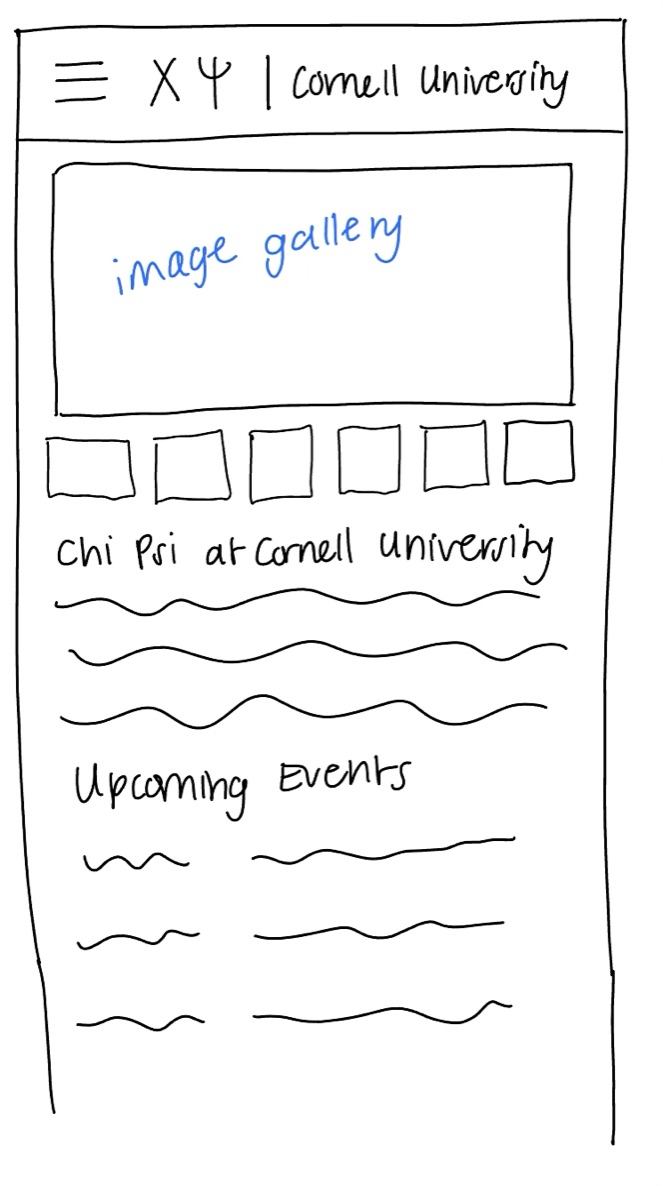 Χ Ψ | Cornell University
image gallery
Chi Psi at Cornell University
Upcoming Events